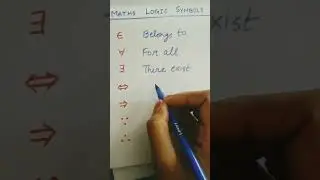 MATHS LOGIC SYMBOLS
∈ Belongs to
∀ For all
∃ There exist
⇔
⇒
∵
∴